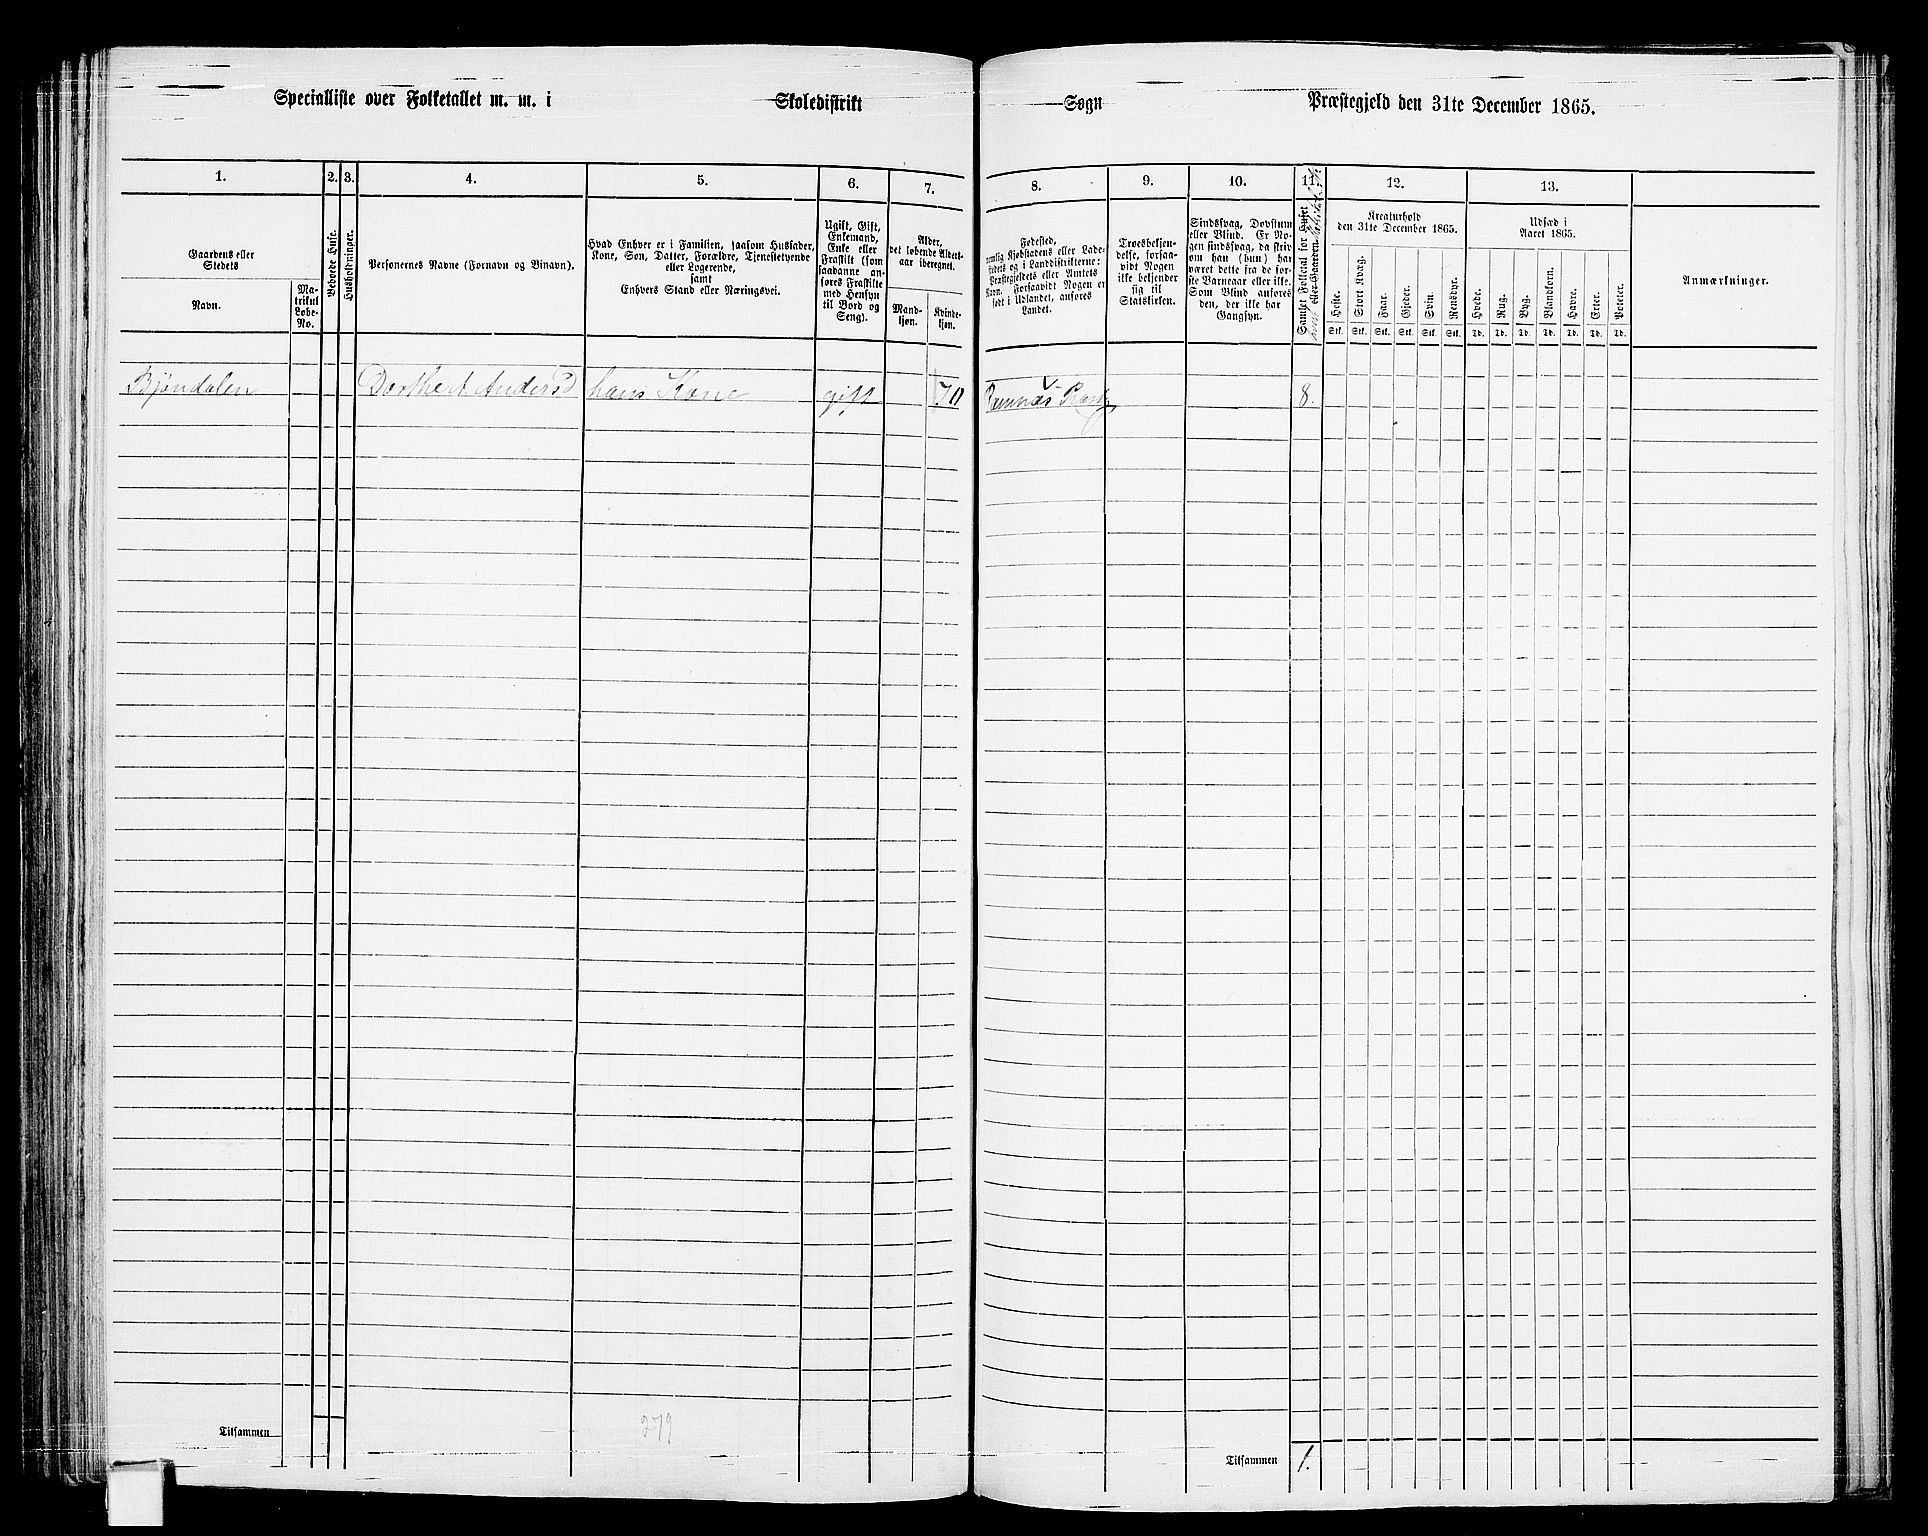 Specialliste over Folketallet m. m. i Skoledistrikt Sogn Præstegjeld den 31te December 1865.
1. 2. 3. 4. 5. 6. 7. 8. 9. 10. 11. 12. 13.
Gaardens eller
Stedets
Navn.
Ma-
trikul
Løbe-
No.
Beboede Huse.
Husholdninger.
Personernes Navne (Fornavn og Binavn).
Hvad Enhver er i Familien, saasom Husfader,
Kone, Søn, Datter, Forældre, Tjenestetyende
eller Logerende,
samt
Enhvers Stand eller Næringsvei.
Ugift, Gift,
Enkemand,
Enke eller
Fraskilt (som
saadanne an-
føres Fraskilte
med Hensyn
til Bord og
Seng).
Alder,
det løbende Alders-
aar iberegnet.
Mand-
kjøn.
Kvinde-
kjøn.
Fødested,
nemlig Kjøbstadens eller Lade-
stedets og i Landdistrikterne:
Præstegjeldets eller Amtets
Navn. Forsaavidt Nogen er
født i Udlandet, anføres
Landet.
Troesbekjen-
delse, forsaa-
vidt Nogen
ikke bekjender
sig til
Statskirken.
Sindssvag, Døvstum
eller Blind. Er No-
gen sindssvag, da skriv
om han (hun) har
været dette fra de før-
ste Barneaar eller ikke.
Som Blind anføres
den, der ikke har
Gangsyn.
Samlet Folketal for Huset
eller Gaarden.
Kreaturhold
den 31te December 1865.
Heste.
Stort Kvæg.
Faar.
Gjeder.
Svin.
Rensdyr.
Stk. Stk. Stk. Stk. Stk. Stk.
Udsæd i
Aaret 1865.
Hvede.
Rug.
Byg.
Blandkorn.
Havre.
Erter.
Poteter.
Td. Td. Td. Td. Td. Td. Td.
Anmærkninger.
Bjöndalen Dorthea Andersd hans Kone gift 70 8.
279
Tilsammen
Tilsammen 1.